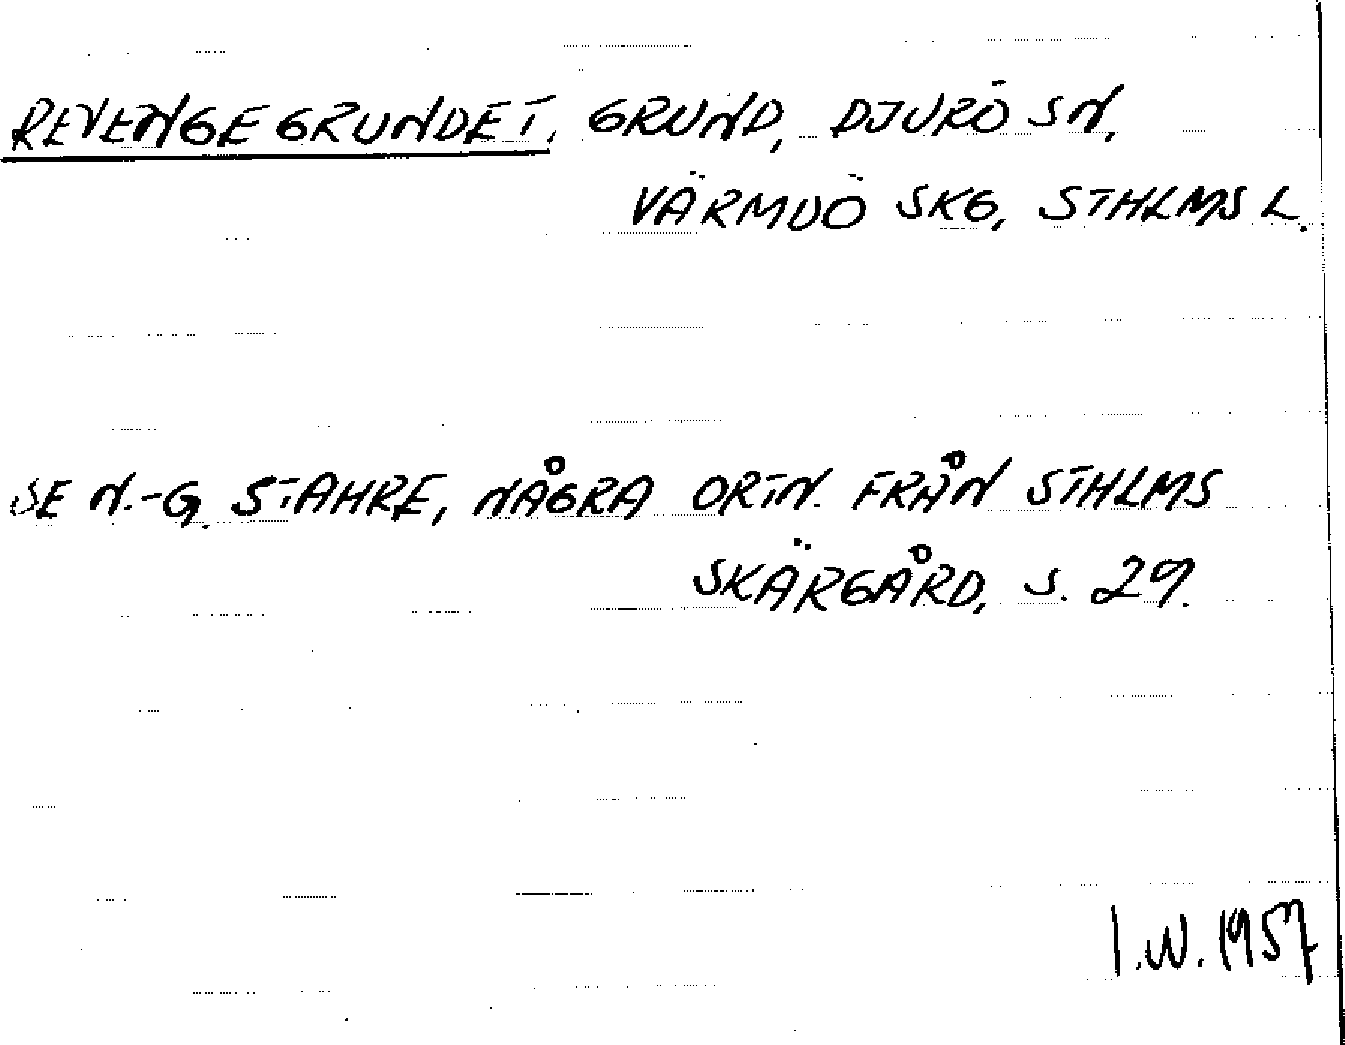 REVENGEGRUNDET, GRUND, DJURÖ SN,
VÄRMDÖ SKG, STHLMS L.
SE N.-G. STAHRE, NÅGRA ORTN. FRÅN STHLMS
SKÄRGÅRD, S. 29.
I.W. 1957